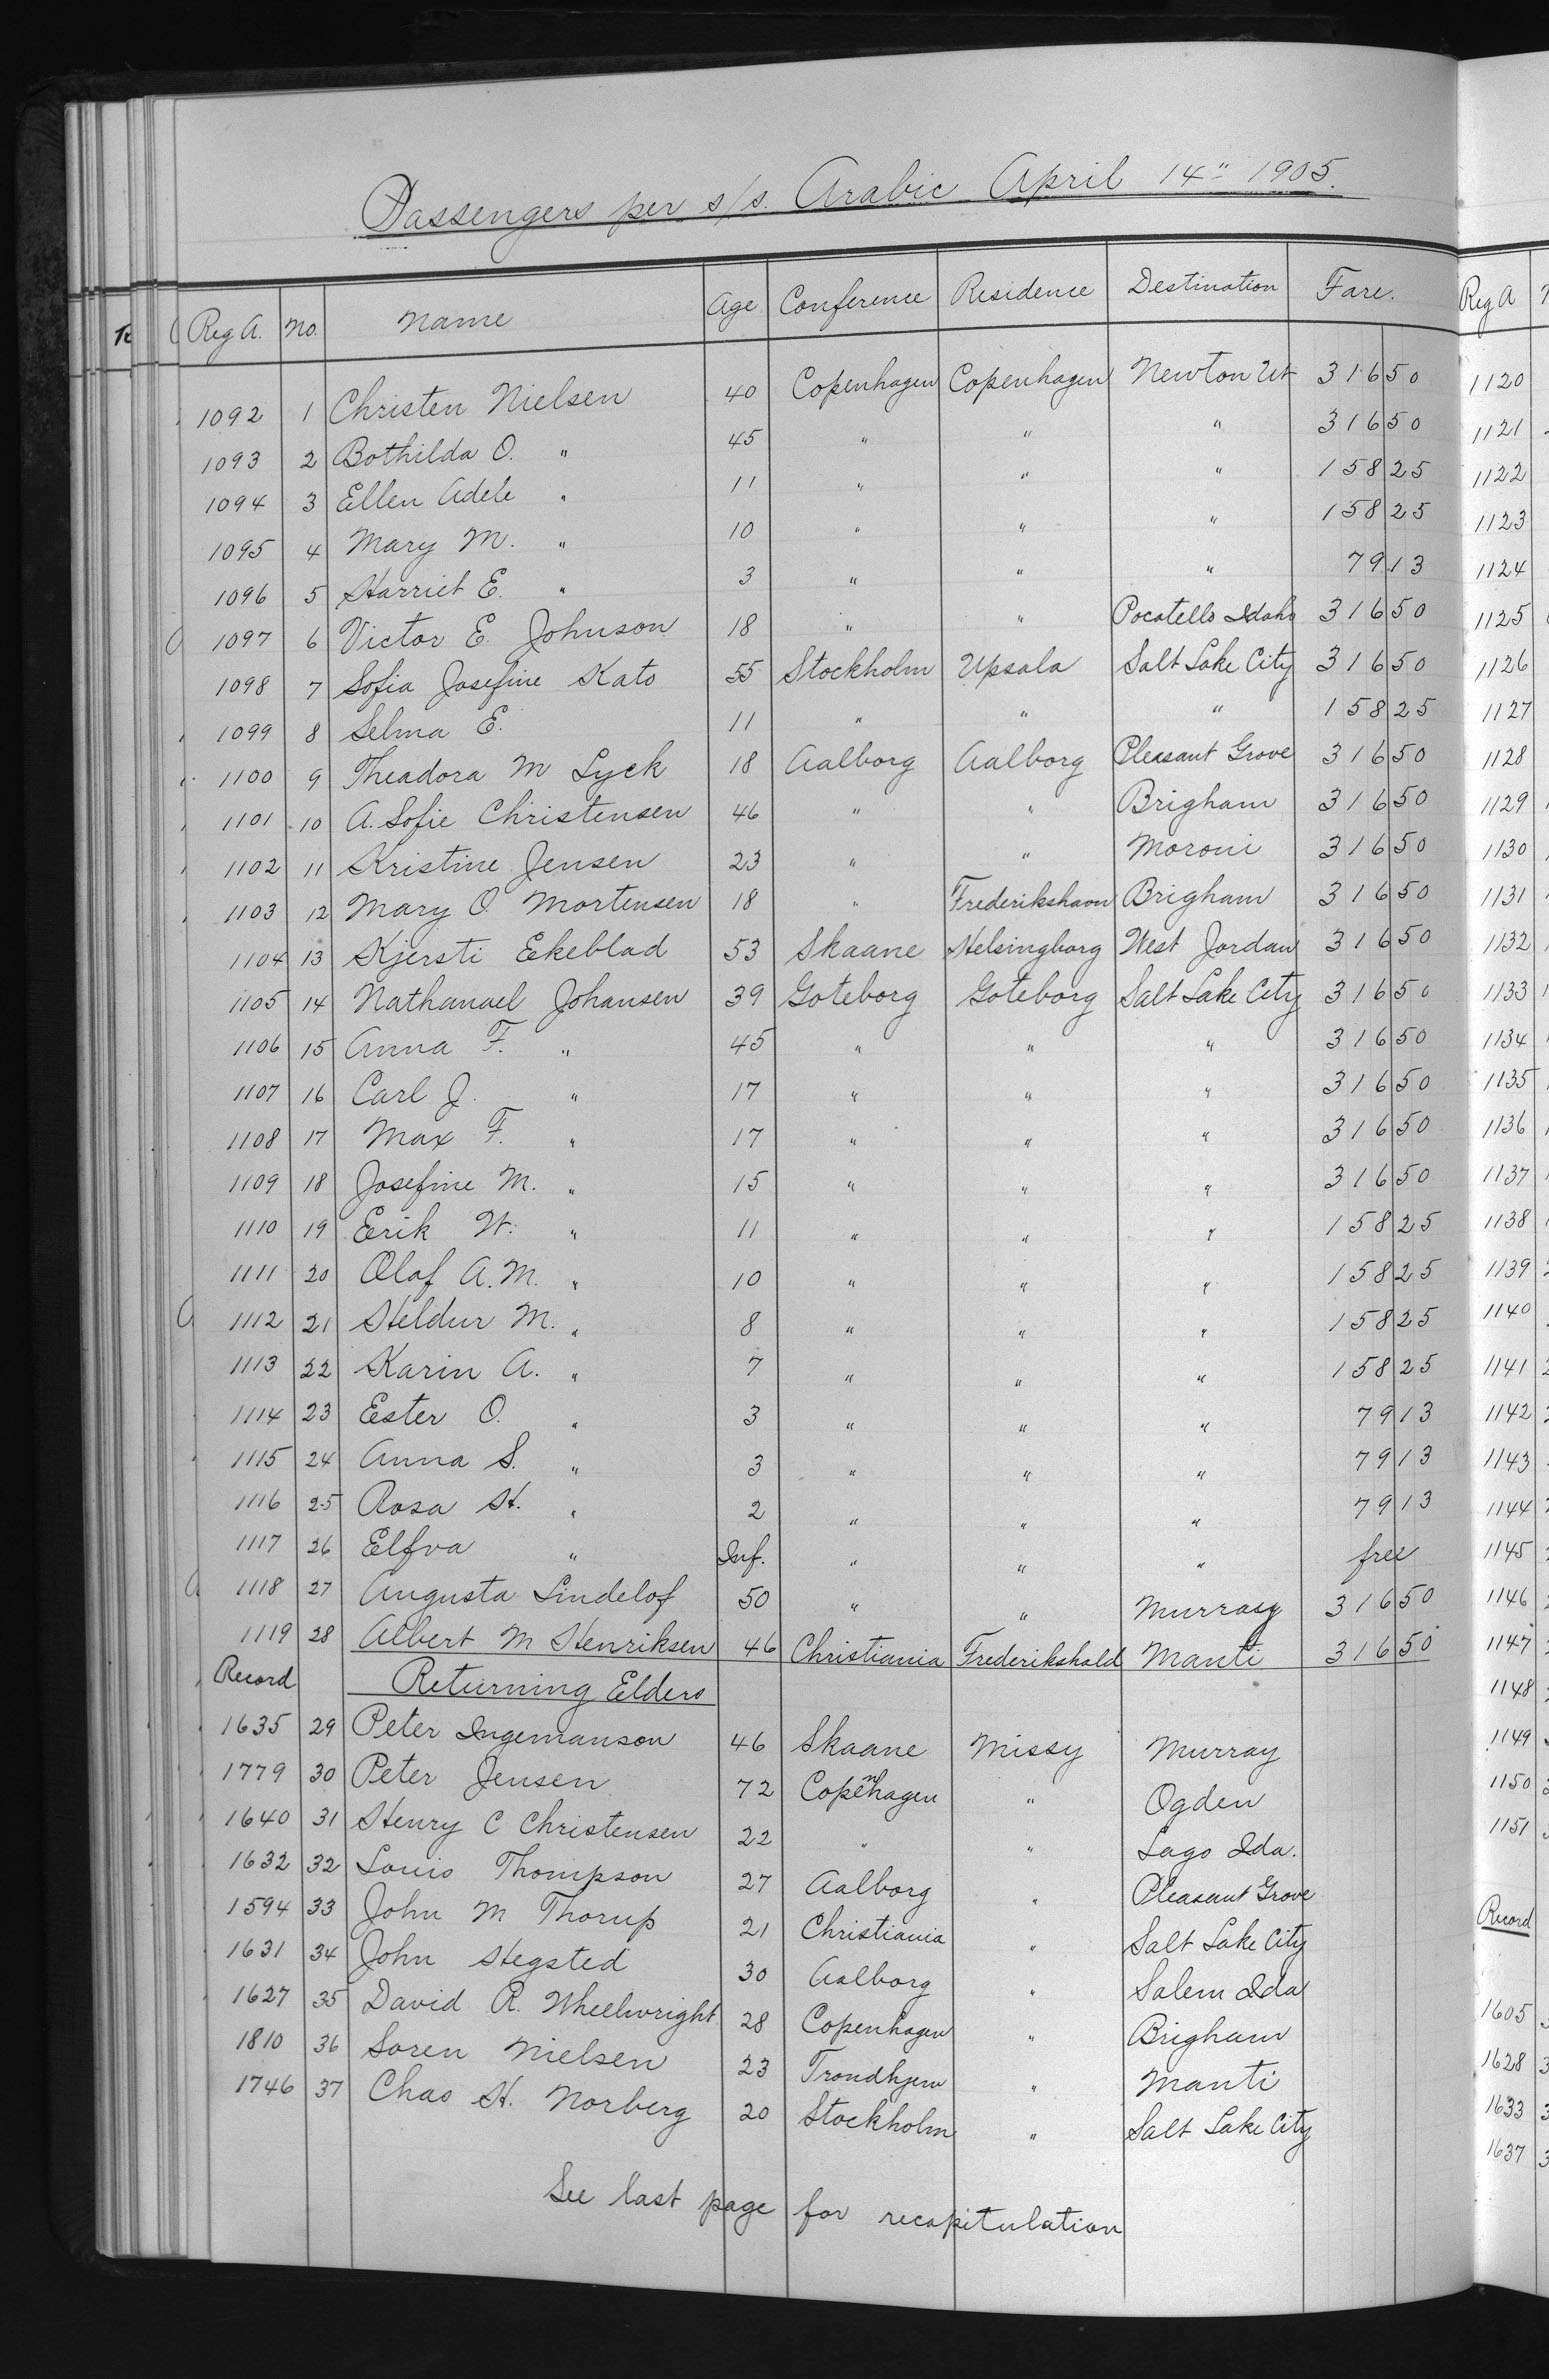 Passengers per s/s. Arabic April 14" 1905.
Reg A. No. Name Age Conference Residence Destination Fare. Reg A
1092 1 Christen Nielsen 40 Copenhagen Copenhagen Newton Ut 316 50 1120
1093 2 Bothilda O. " 45 " " " 316 50 1121
1094 3 Ellen Adele " 11 " " " 158 25 1122
1095 4 Mary M. " 10 " " " 158 25 1123
1096 5 Harriet E. " 3 " " " 79 13 1124
1097 6 Victor E. Johnson 18 " " Pocatello Idaho 316 50 1125
1098 7 Sofia Josefine Kato 55 Stockholm Upsala Salt Lake City 316 50 1126
1099 8 Selma E. 11 " " " 158 25 1127
1100 9 Theadora M Lyck 18 Aalborg Aalborg Pleasant Grove 316 50 1128
1101 10 A. Sofie Christensen 46 " " Brigham 316 50 1129
1102 11 Kristine Jensen 23 " " Moroni 316 50 1130
1103 12 Mary O. Mortensen 18 " Frederikshavn Brigham 316 50 1131
1104 13 Kjersti Ekeblad 53 Skaane Helsingborg West Jordan 316 50 1132
1105 14 Nathanael Johansen 39 Goteborg Goteborg Salt Lake City 316 50 1133
1106 15 Anna F. " 45 " " " 316 50 1134
1107 16 Carl J. " 17 " " " 316 50 1135
1108 17 Max F. " 17 " " " 316 50 1136
1109 18 Josefine M. " 15 " " " 316 50 1137
1110 19 Erik W. " 11 " " " 158 25 1138
1111 20 Olaf A. M. " 10 " " " 158 25 1139
1112 21 Heldur M. " 8 " " " 158 25 1140
1113 22 Karin A. " 7 " " " 158 25 1141
1114 23 Ester O. " 3 " " " 79 13 1142
1115 24 Anna S. " 3 " " " 79 13 1143
1116 25 Rosa H. " 2 " " " 79 13 1144
1117 26 Elfva " Inf. " " " free 1145
1118 27 Augusta Lindelof 50 " " Murray 316 50 1146
1119 28 Albert M Henriksen 46 Christiania Frederikshald Manti 316 50 1147
Record Returning Elders 1148
1635 29 Peter Ingemanson 46 Skaane Missy Murray 1149
1779 30 Peter Jensen 72 Copenhagen " Ogden 1150
1640 31 Henry C Christensen 22 " " Lago Ida. 1151
1632 32 Louis Thompson 27 Aalborg " Pleasant Grove
1594 33 John M Thorup 21 Christiania " Salt Lake City Record
1631 34 John Hegsted 30 Aalborg " Salem Ida
1627 35 David R. Wheelwright 28 Copenhagen " Brigham 1605
1810 36 Soren Nielsen 23 Trondhjem " Manti 1628
1746 37 Chas H. Norberg 20 Stockholm " Salt Lake City 1633
1637
See last page for recapitulation